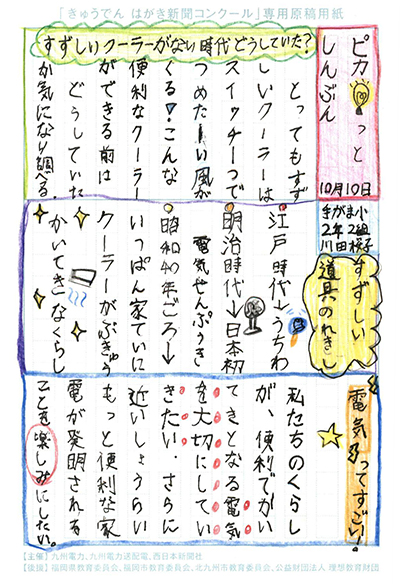 「きゅうでん はがき新聞コンクール」専用原稿用紙
ピカッと
しんぶん
10月10日
手がま小
2年2組
川田桜子
すずしいクーラーがない時代どうしていた?
とってもすず
しいクーラーは
スイッチ一つで
つめたーい風が
くる・こんな
便利なクーラー
ができる前は
どうしていた
か気になり調べる。
すずしい
道具のれきし
江戸時代→うちわ
明治時代→日本初
電気せんぷうき
昭和40年ごろ→
いっぱん家ていに
クーラーがふきゅう
かいてきなくらし
電気ってすごい!
私たちのくらし
が、便利でかい
てきとなる電気
を大切にしてい
きたい。さらに
近いしょうらい
もっと便利な家
電が発明される
ことを楽しみにしたい。
【主催】九州電力、九州電力送配電、西日本新聞社
【後援】福岡県教育委員会、福岡市教育委員会、北九州市教育委員会、公益財団法人 理想教育財団